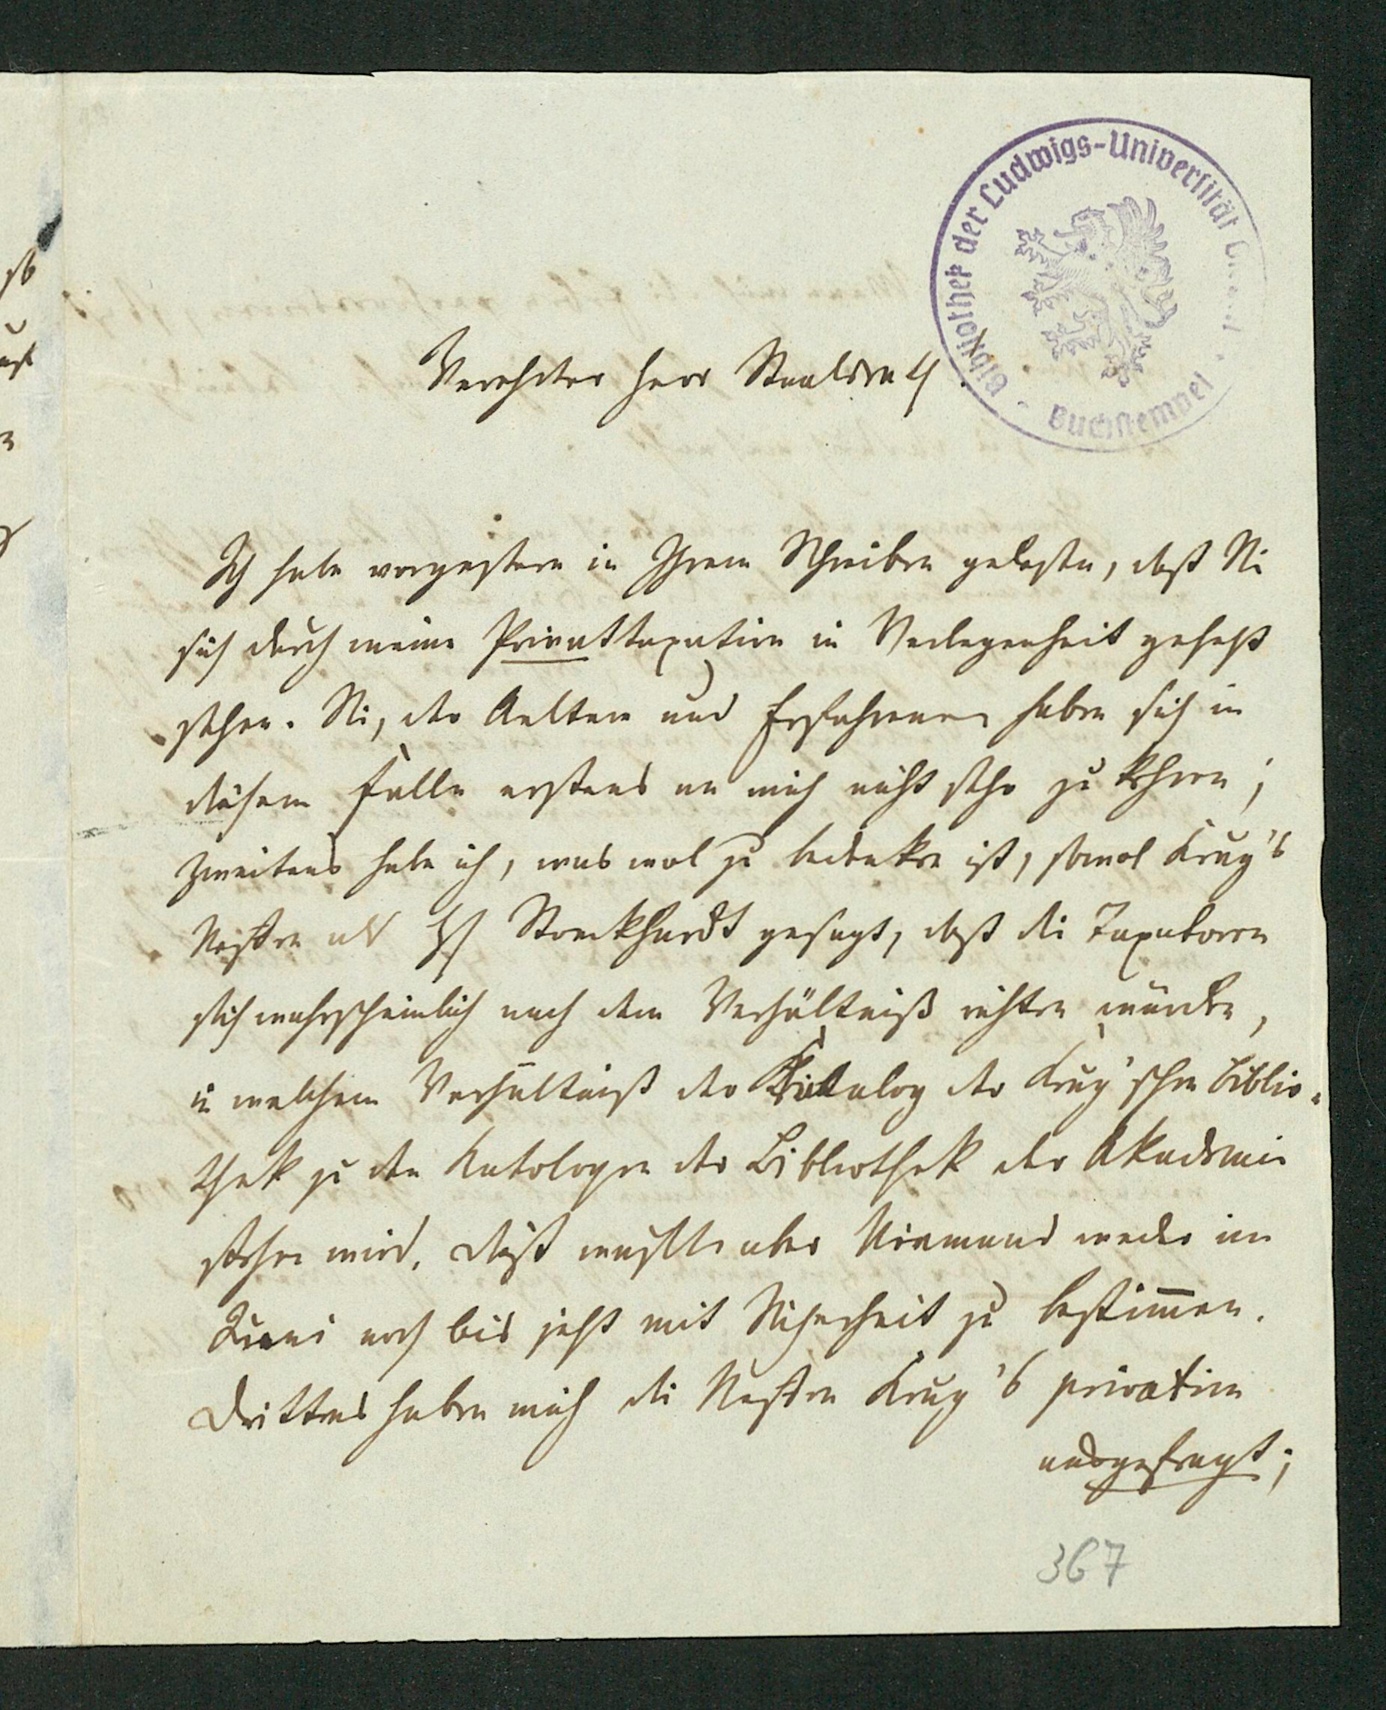 Bibliothek der Ludwigs-Universität
Buchstempel
Verehrter Herr Staatsrath
Ich habe vorgestern in Ihrem Schreiben gelesen, daß Sie
sich durch meine Privattaxation in Verlegenheit gesetzt
sehen. Sie, der Aeltere und Erfahrenere haben sich in
diesem Falle erstens an mich nicht sehr zu kehren;
zweitens habe ich, was wol zu bedenken ist, sowol Krug's
Neffen als Stoeckhardt gesagt, daß die Taxatoren
sich wahrscheinlich nach dem Verhältniß richten würden,
in welchem Verhältniß der Katalog der Krug'schen Biblio-
thek zu den Katalogen der Bibliothek der Akademie
stehen wird. Dieß wußte aber Niemand weder im
Juni noch bis jetzt mit Sicherheit zu bestimmen.
Drittens haben mich die Neffen Krug's privatim
ausgefragt;
367